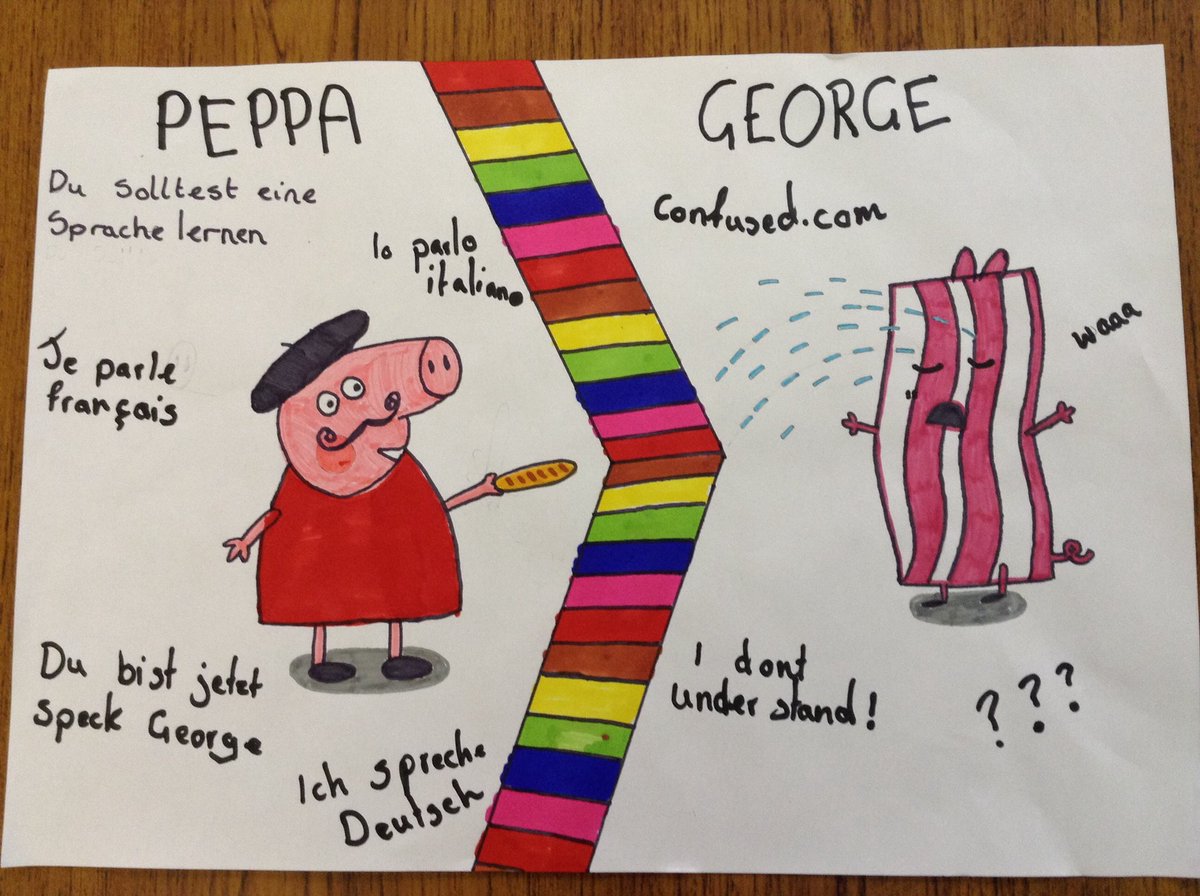 PEPPA
Du solltest eine
Sprache lernen
Io parlo
italiano
Je parle
français
Du bist jetzt
speck George
Ich spreche
Deutsch
GEORGE
Confused.com
waaa
I dont
understand!
???